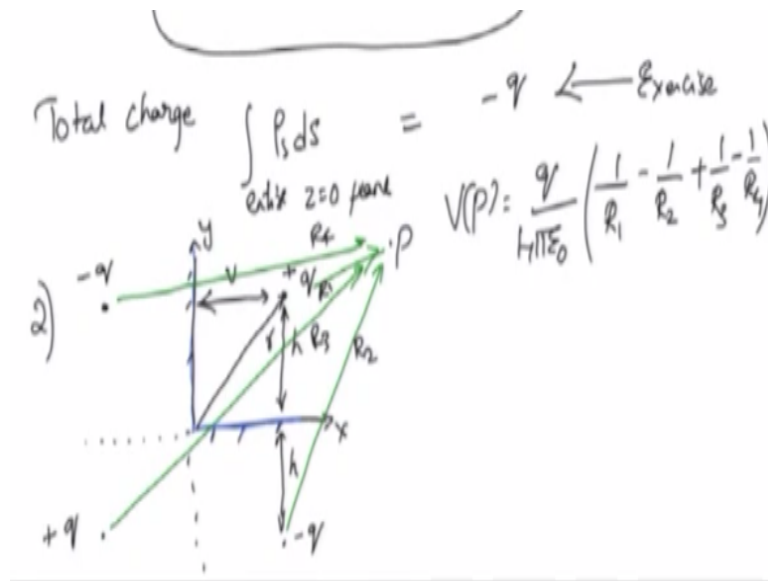 Total charge ∫ ρs ds = -q ← Exercise
entire z=0 plane
V(P) = q/4πε₀ (1/R₁ - 1/R₂ + 1/R₃ - 1/R₄)
y
R₄
.P
-q
v
+q
R₁
2)
r
h
R₃
R₂
x
h
+q
-q